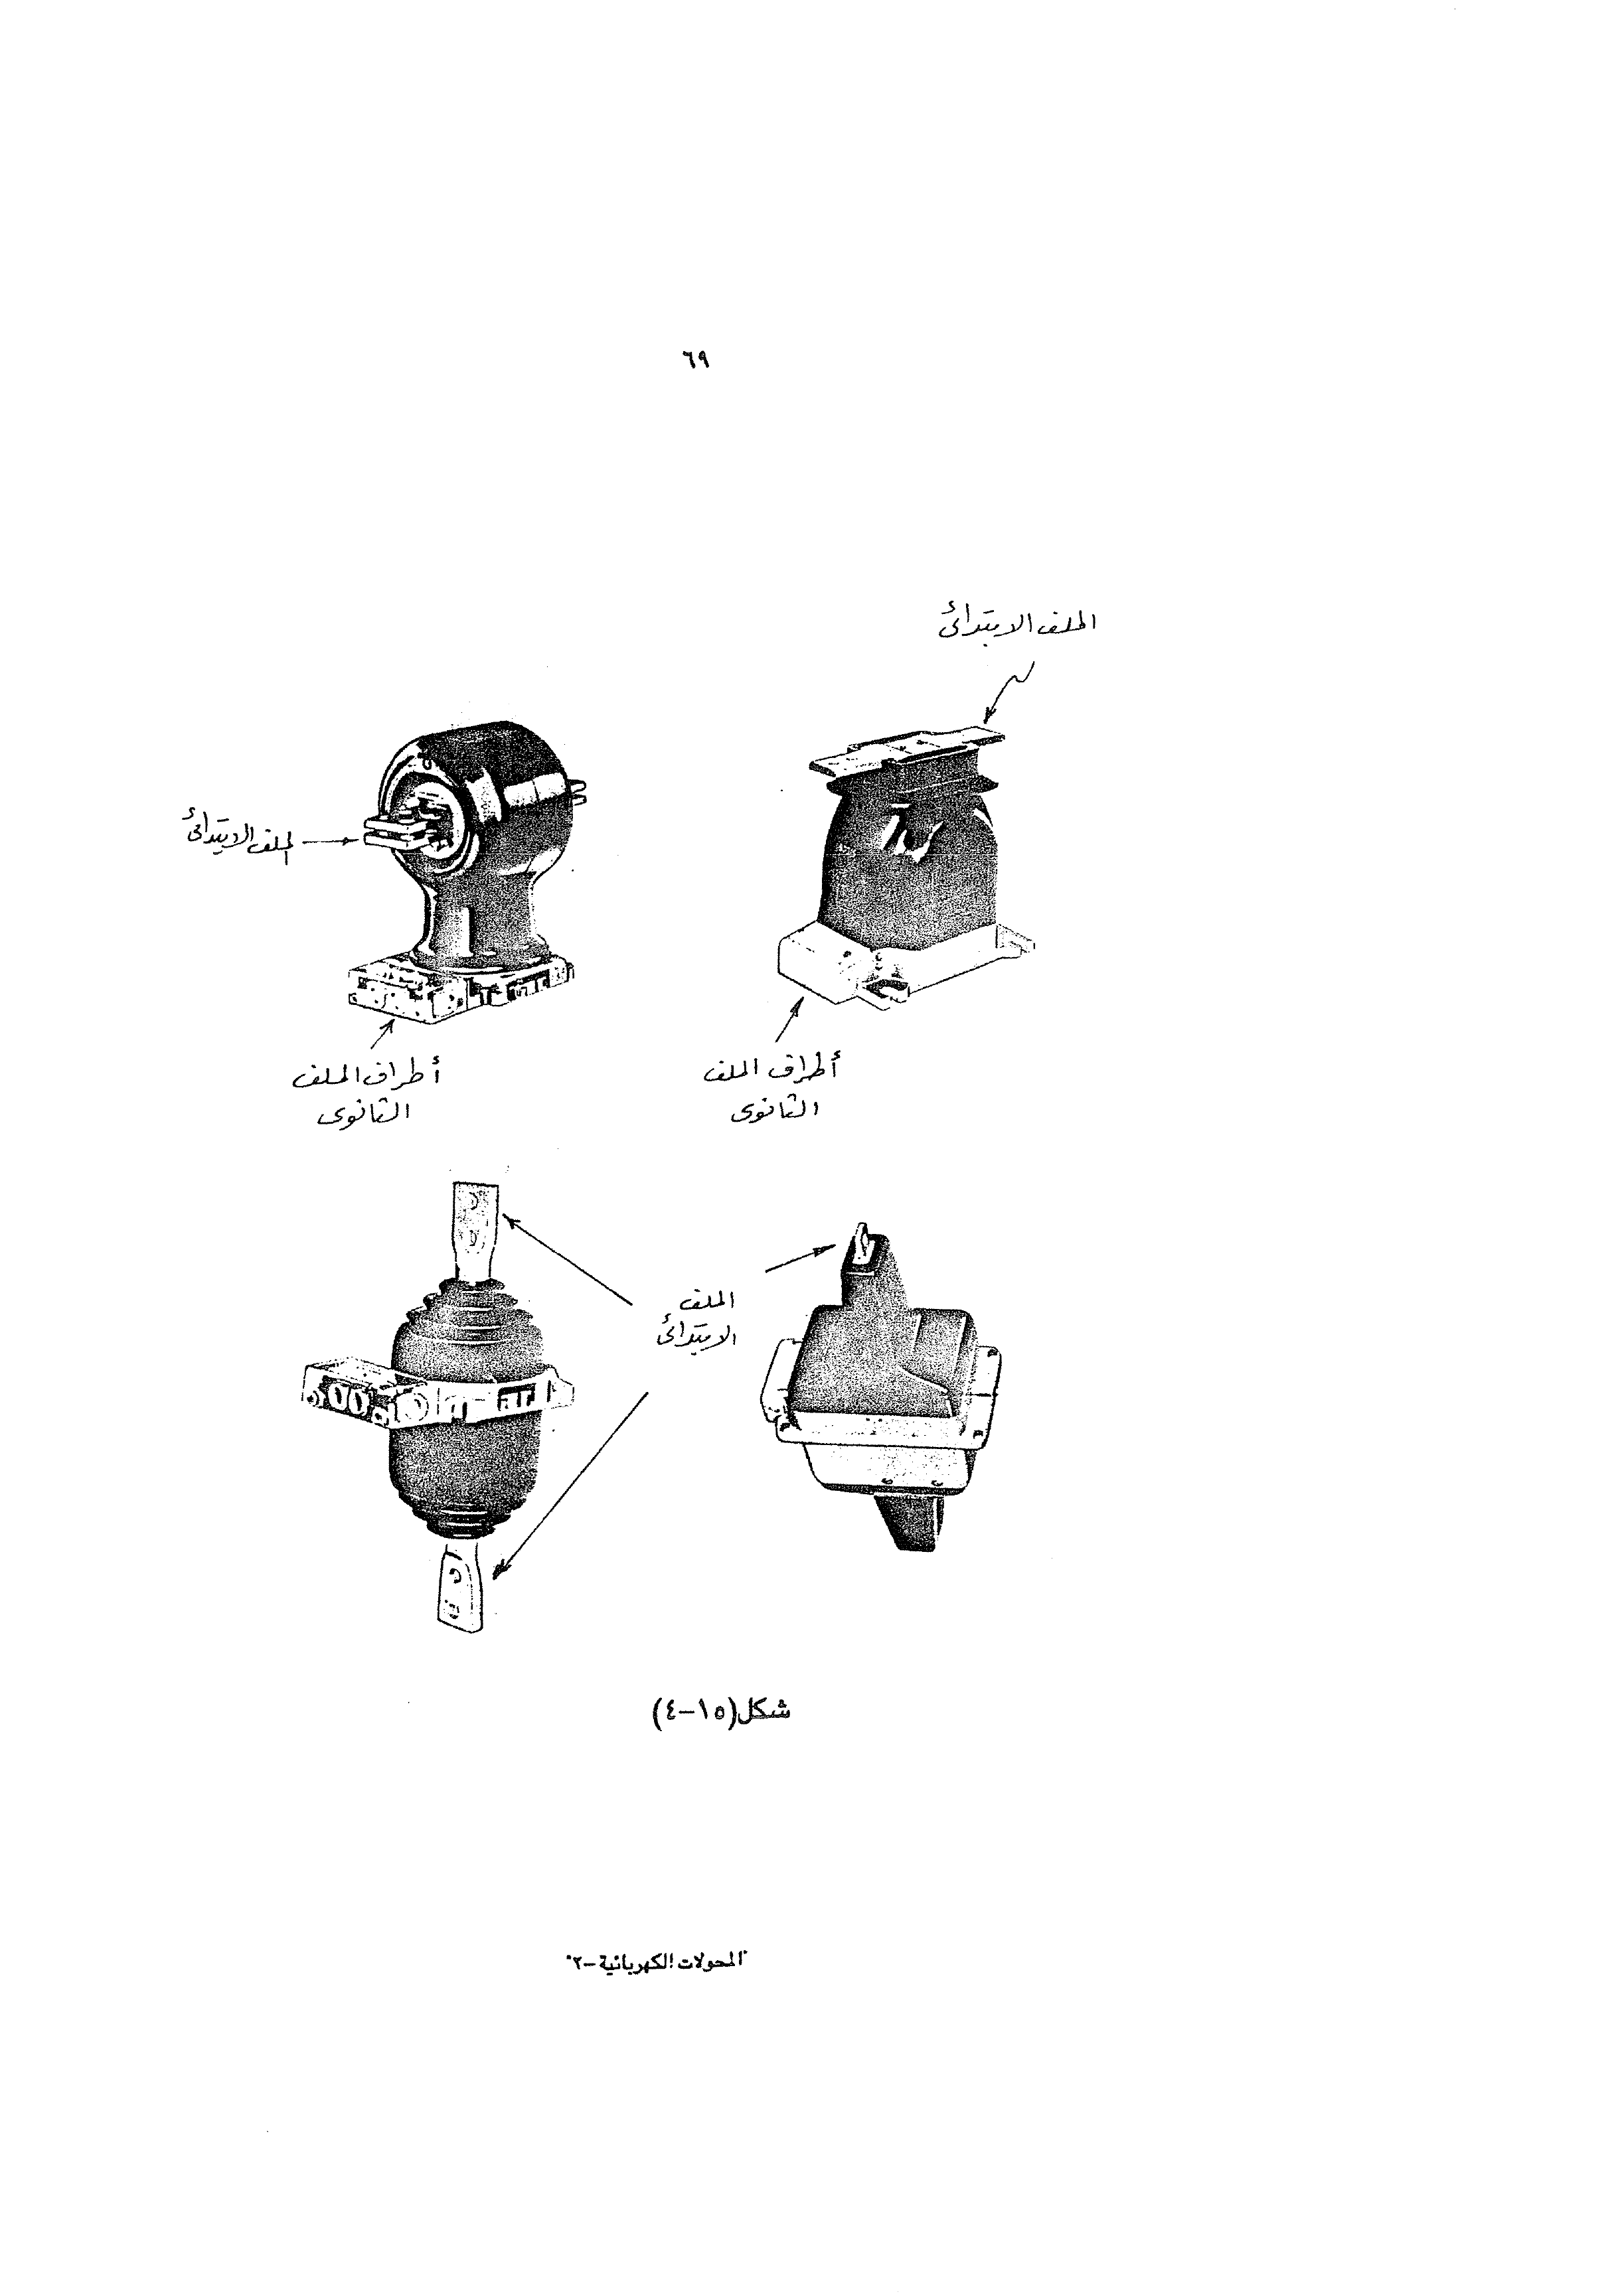 ٦٩
الملف الابتدائى
الملف الابتدائى
أطراف الملف
الثانوى
أطراف الملف
الثانوى
الملف
الابتدائى
شكل(١٥-٤)
"المحولات الكهربائية-٢"